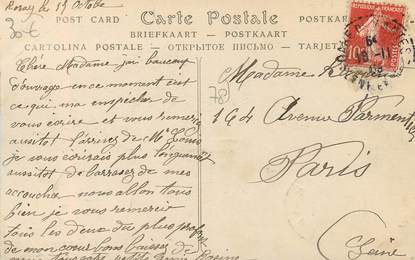 Rosay le 15 Octobre
30€
POST CARD Carte Postale POSTKAR
BRIEFKAART — POSTKAART
CARTOLINA POSTALE — ОТКРЫТОЕ ПИСЬМО — TARJET
REPUBLIQUE FRANÇAISE
10
Chère Madame jai baucoup
d'ouvrage en ce moment c'est
ce qui ma enpecher de
vous écrire et vous remerci
aussitot l'arrivez de Mr Louis
je vous ecriserais plus longument
aussitot debarassez de mes
accoucher nous allon tous
bien je vous remerci
tous les deux du plus profond
de mon cœur bons baisers de
petite
78
Madame
164 Avenue Parmentier
Paris
Seine